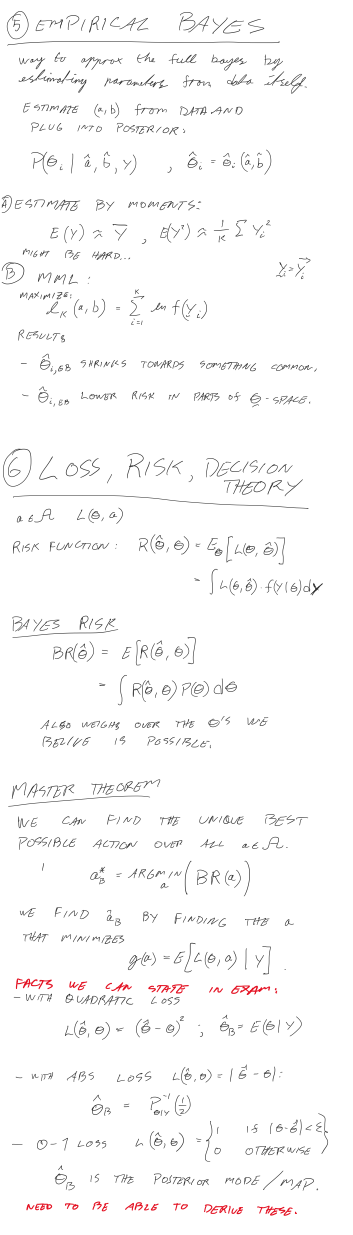 ⑤ EMPIRICAL BAYES
way to approx the full bayes by
estimating parameters from data itself.
ESTIMATE (a,b) from DATA AND
PLUG INTO POSTERIOR:
P(θ_i | â, b̂, y) , θ̂_i = θ̂_i(â,b̂)
Ⓐ ESTIMATE BY MOMENTS:
E(y) ≈ ȳ , E(y²) ≈ 1/K Σ y_i²
MIGHT BE HARD...
Ⓑ MML:
y_i = y⃗_i
MAXIMIZE:
ℓ_K(a,b) = Σ_{i=1}^{K} ln f(y_i)
RESULTS
- θ̂_{i,EB} SHRINKS TOWARDS SOMETHING COMMON,
- θ̂_{i,EB} LOWER RISK IN PARTS OF θ-SPACE.
⑥ LOSS, RISK, DECISION
THEORY
a ∈ A L(θ,a)
RISK FUNCTION: R(θ̂,θ) = E_θ[L(θ,θ̂)]
= ∫ L(θ,θ̂)·f(y|θ)dy
BAYES RISK
BR(θ̂) = E[R(θ̂,θ)]
= ∫ R(θ̂,θ) P(θ) dθ
ALSO WEIGHS OVER THE θ'S WE
BELIVE IS POSSIBLE.
MASTER THEOREM
WE CAN FIND THE UNIQUE BEST
POSSIBLE ACTION OVER ALL a ∈ A.
a*_B = ARGMIN_a (BR(a))
WE FIND â_B BY FINDING THE a
THAT MINIMIZES
g(a) = E[L(θ,a) | y].
FACTS WE CAN STATE IN EXAM:
- WITH QUADRATIC LOSS
L(θ̂,θ) = (θ̂-θ)² ; θ̂_B = E(θ|y)
- WITH ABS LOSS L(θ̂,θ) = |θ̂-θ|:
θ̂_B = P⁻¹_{θ|y}(1/2)
- 0-1 LOSS L(θ̂,θ) = { 1 IF |θ-θ̂|<ε
0 OTHERWISE }
θ̂_B IS THE POSTERIOR MODE/MAP.
NEED TO BE ABLE TO DERIVE THESE.